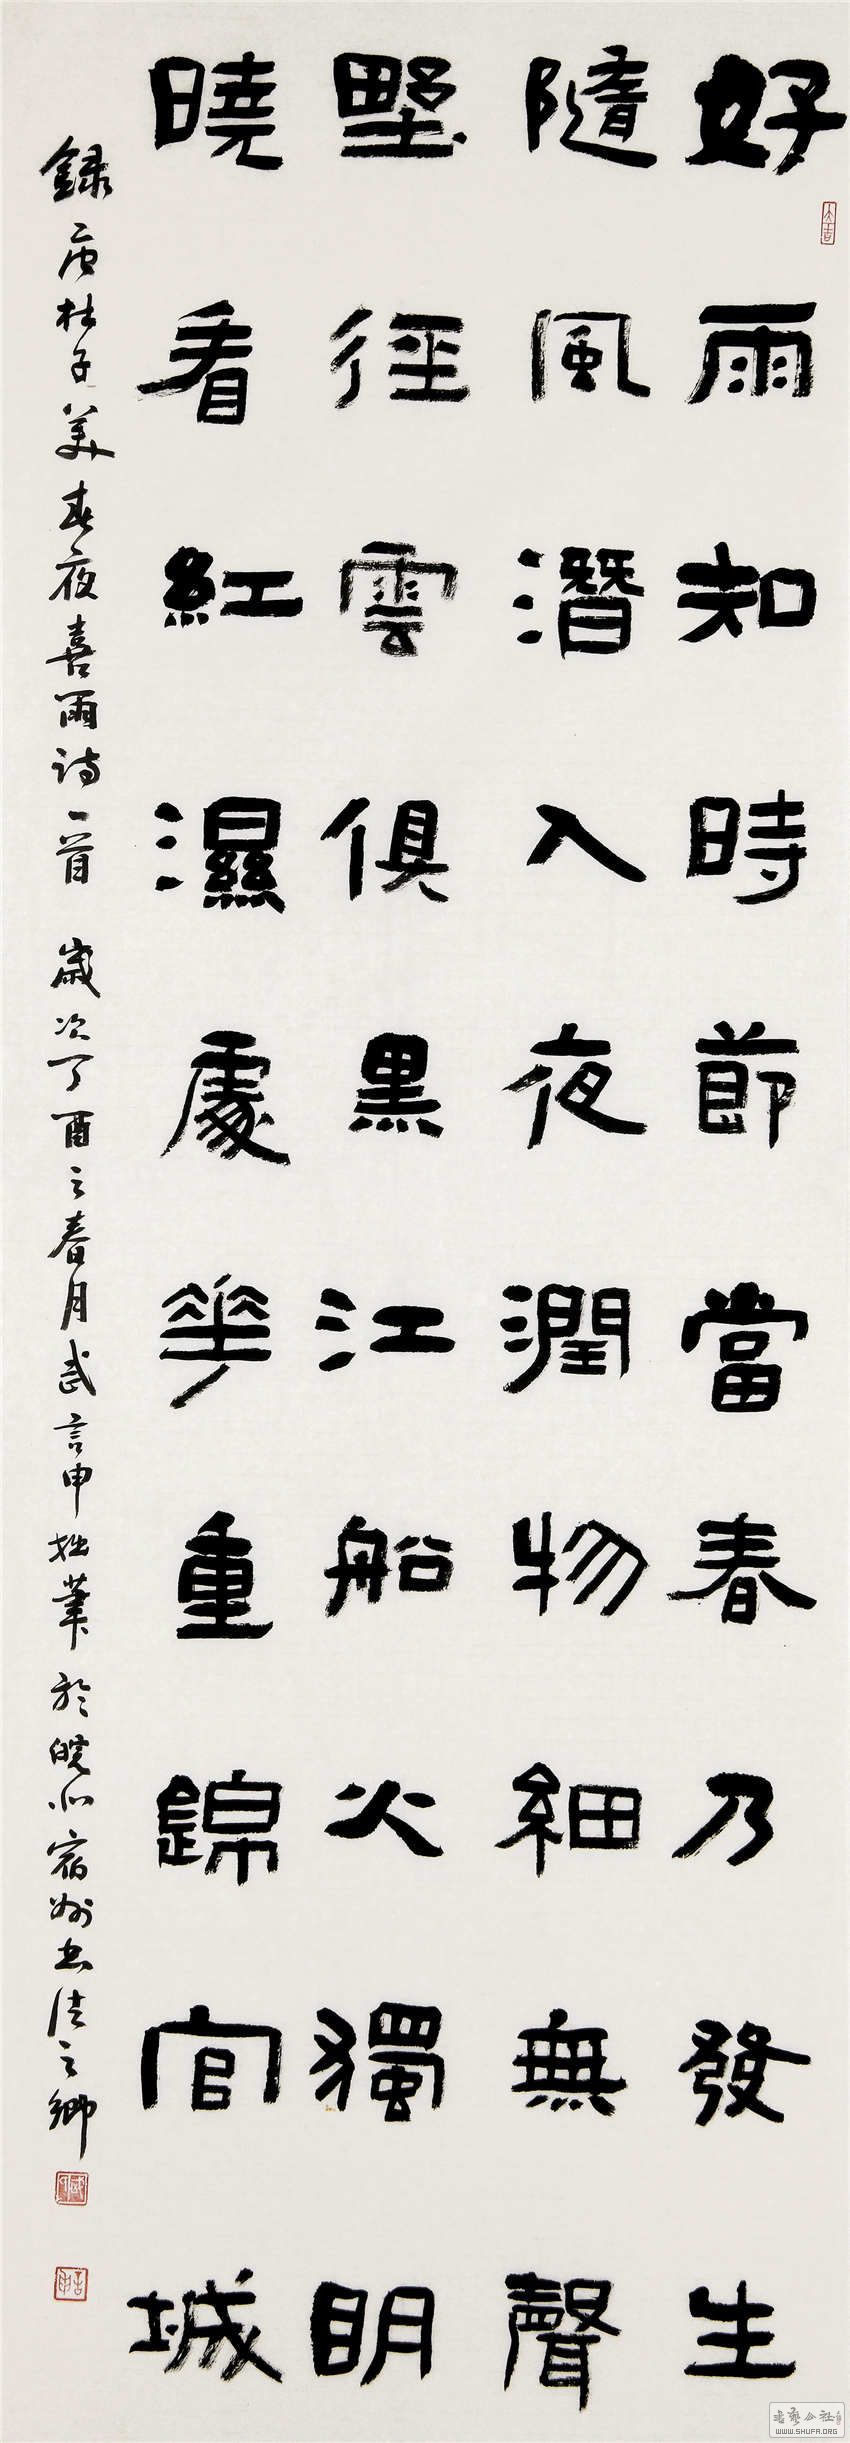 好雨知時節當春乃發生
隨風潛入夜潤物細無聲
墅徑雲俱黑江船火獨眀
曉看紅濕處華重錦官城
録唐杜子美春夜喜雨詩一首 歲次丁酉之春月武言申拙筆於皖北宿州書法之鄉
大吉
言申
書藝公社
WWW.SHUFA.ORG